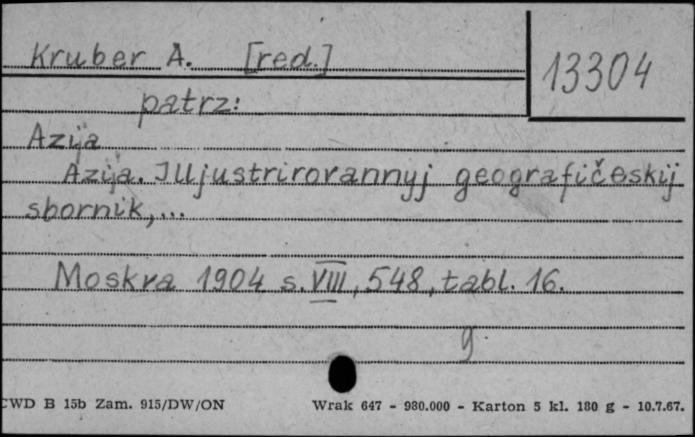 Kruber A. [red.]
13304
patrz:
Azija
Azija. Illjustrirovannyj geografičeskij
sbornik,...
Moskva 1904 s. VIII, 548, tabl. 16.
g
CWD B 15b Zam. 915/DW/ON Wrak 647 - 980.000 - Karton 5 kl. 180 g - 10.7.67.